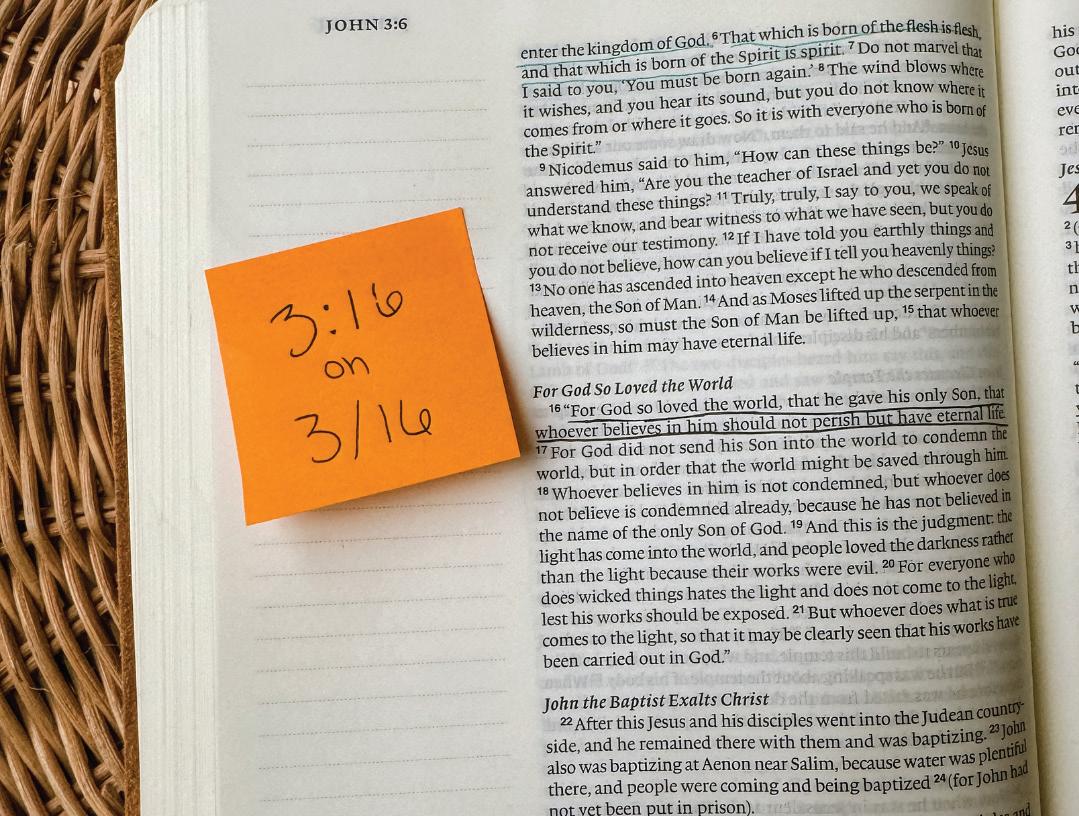 JOHN 3:6
3:16
on
3/16
enter the kingdom of God. 6 That which is born of the flesh is flesh,
and that which is born of the Spirit is spirit. 7 Do not marvel that
I said to you, ‘You must be born again.’ 8 The wind blows where
it wishes, and you hear its sound, but you do not know where it
comes from or where it goes. So it is with everyone who is born of
the Spirit.”
9 Nicodemus said to him, “How can these things be?” 10 Jesus
answered him, “Are you the teacher of Israel and yet you do not
understand these things? 11 Truly, truly, I say to you, we speak of
what we know, and bear witness to what we have seen, but you do
not receive our testimony. 12 If I have told you earthly things and
you do not believe, how can you believe if I tell you heavenly things?
13 No one has ascended into heaven except he who descended from
heaven, the Son of Man. 14 And as Moses lifted up the serpent in the
wilderness, so must the Son of Man be lifted up, 15 that whoever
believes in him may have eternal life.
For God So Loved the World
16 “For God so loved the world, that he gave his only Son, that
whoever believes in him should not perish but have eternal life.
17 For God did not send his Son into the world to condemn the
world, but in order that the world might be saved through him.
18 Whoever believes in him is not condemned, but whoever does
not believe is condemned already, because he has not believed in
the name of the only Son of God. 19 And this is the judgment: the
light has come into the world, and people loved the darkness rather
than the light because their works were evil. 20 For everyone who
does wicked things hates the light and does not come to the light,
lest his works should be exposed. 21 But whoever does what is true
comes to the light, so that it may be clearly seen that his works have
been carried out in God.”
John the Baptist Exalts Christ
22 After this Jesus and his disciples went into the Judean country-
side, and he remained there with them and was baptizing. 23 John
also was baptizing at Aenon near Salim, because water was plentiful
there, and people were coming and being baptized 24 (for John had
not yet been put in prison).
his
out
4